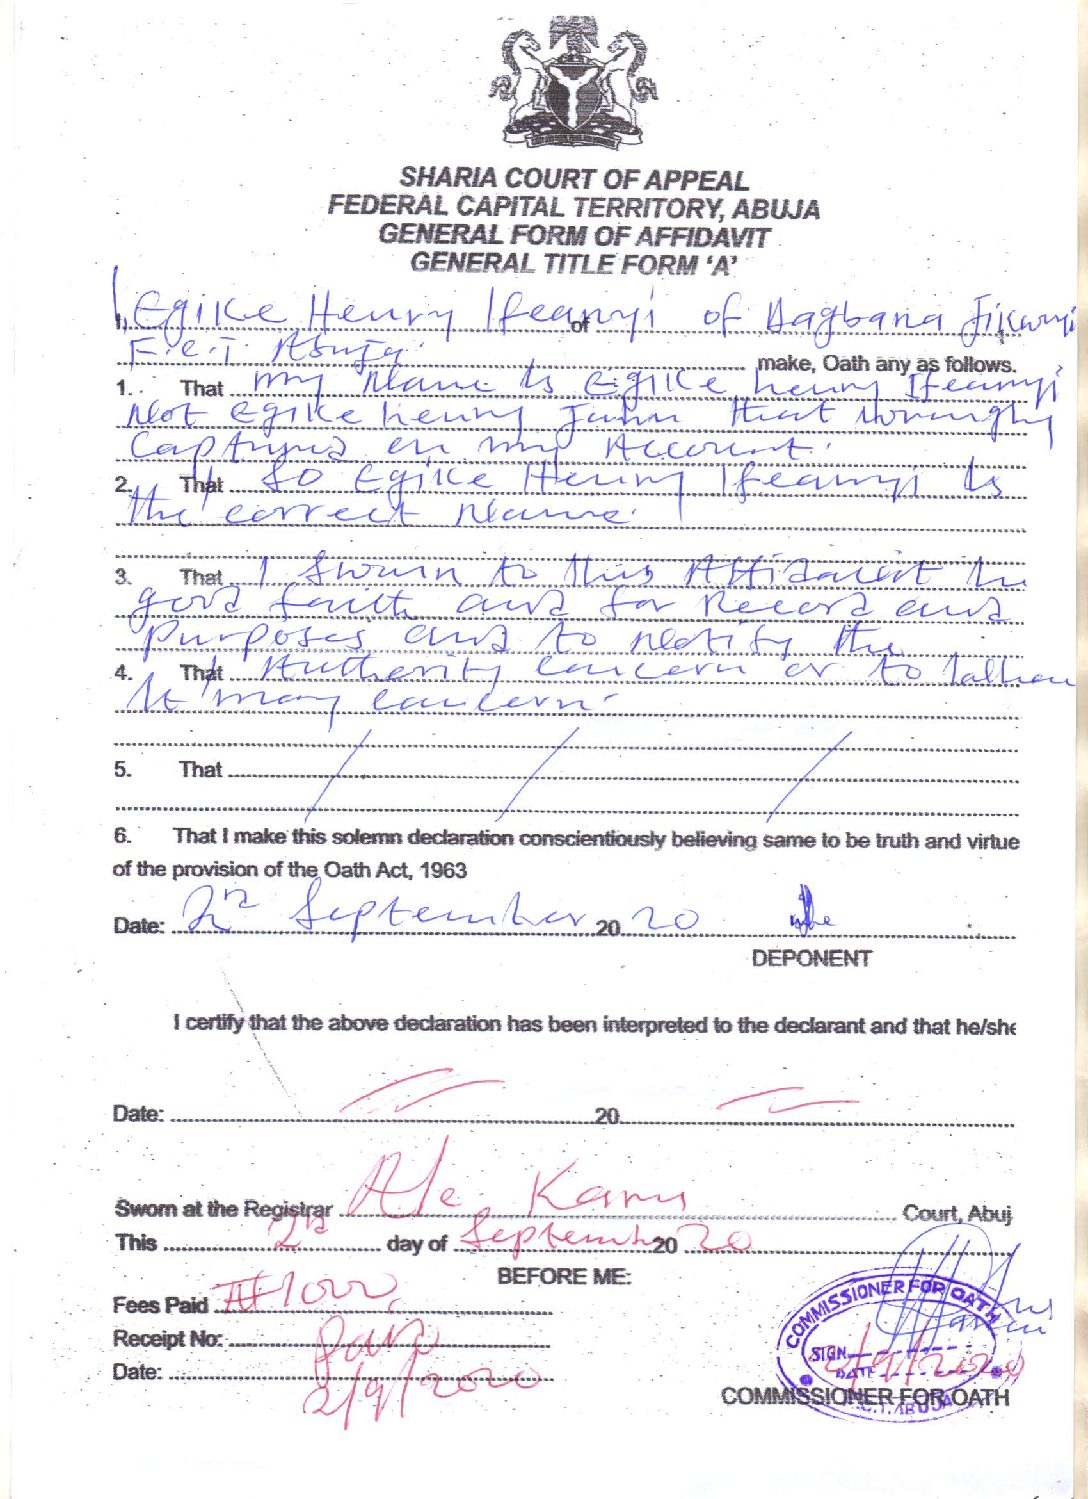 SHARIA COURT OF APPEAL
FEDERAL CAPITAL TERRITORY, ABUJA
GENERAL FORM OF AFFIDAVIT
GENERAL TITLE FORM ‘A’
I, Egike Henry Ifeanyi of of Dagbana Jikwoyi
F.C.T Abuja. make, Oath any as follows.
1. That my Name Is Egike henry Ifeanyi
Not egike henry John that wrongly
Captured on my Account.
2. That so Egike Henry Ifeanyi Is
the correct Name.
3. That I sworn to this Affidavit In
good faith and for Record and
Purposes and to Notify the
4. That Authority concern or to
It may concern.
5. That
6. That I make this solemn declaration conscientiously believing same to be truth and virtue
of the provision of the Oath Act, 1963
Date: 2nd September 2020
DEPONENT
I certify that the above declaration has been interpreted to the declarant and that he/she
Date: 20
Sworn at the Registrar Kanu Court, Abuj
This 2nd day of September 2020
BEFORE ME:
Fees Paid
Receipt No:
Date: 2/9/2020
COMMISSIONER FOR OATH
SIGN
DATE 2/9/2020
F.C.T. ABUJA
COMMISSIONER FOR OATH